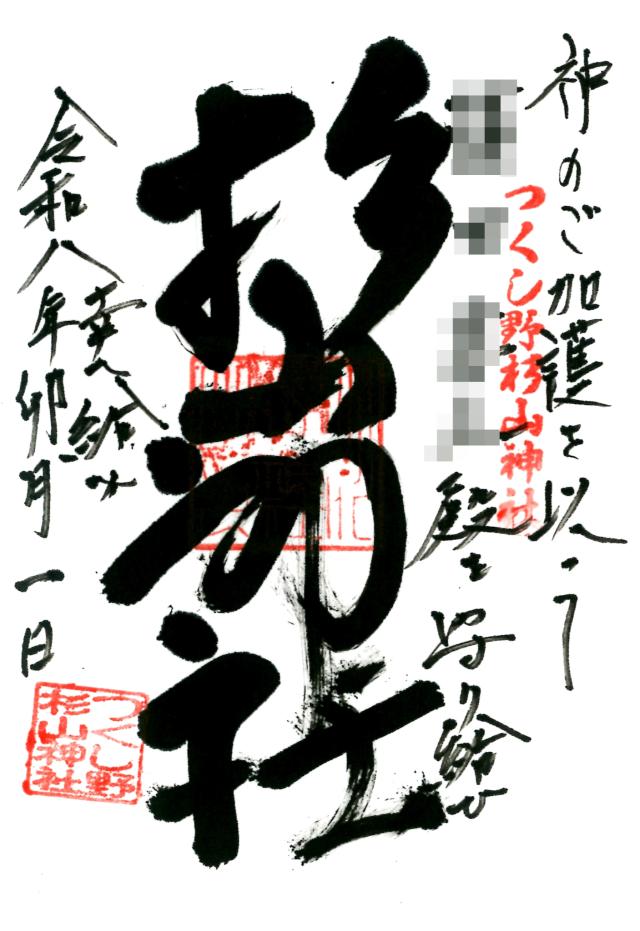 神のご加護を以って
つくし野杉山神社
殿を守り給ひ
杉山神社
幸へ給へ
令和八年卯月一日
つくし野
杉山神社